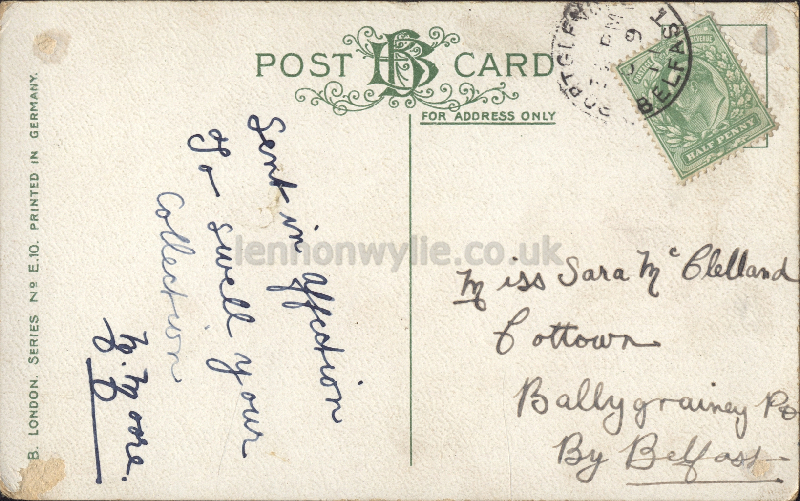 POST CARD
FOR ADDRESS ONLY
B. LONDON. SERIES No E.10. PRINTED IN GERMANY.
BELFAST
HALF PENNY
Sent in affection
To swell your
Collection
M. Moore.
Miss Sara Mc Clelland
Cottown
Ballygrainey Po
By Belfast
lennonwylie.co.uk